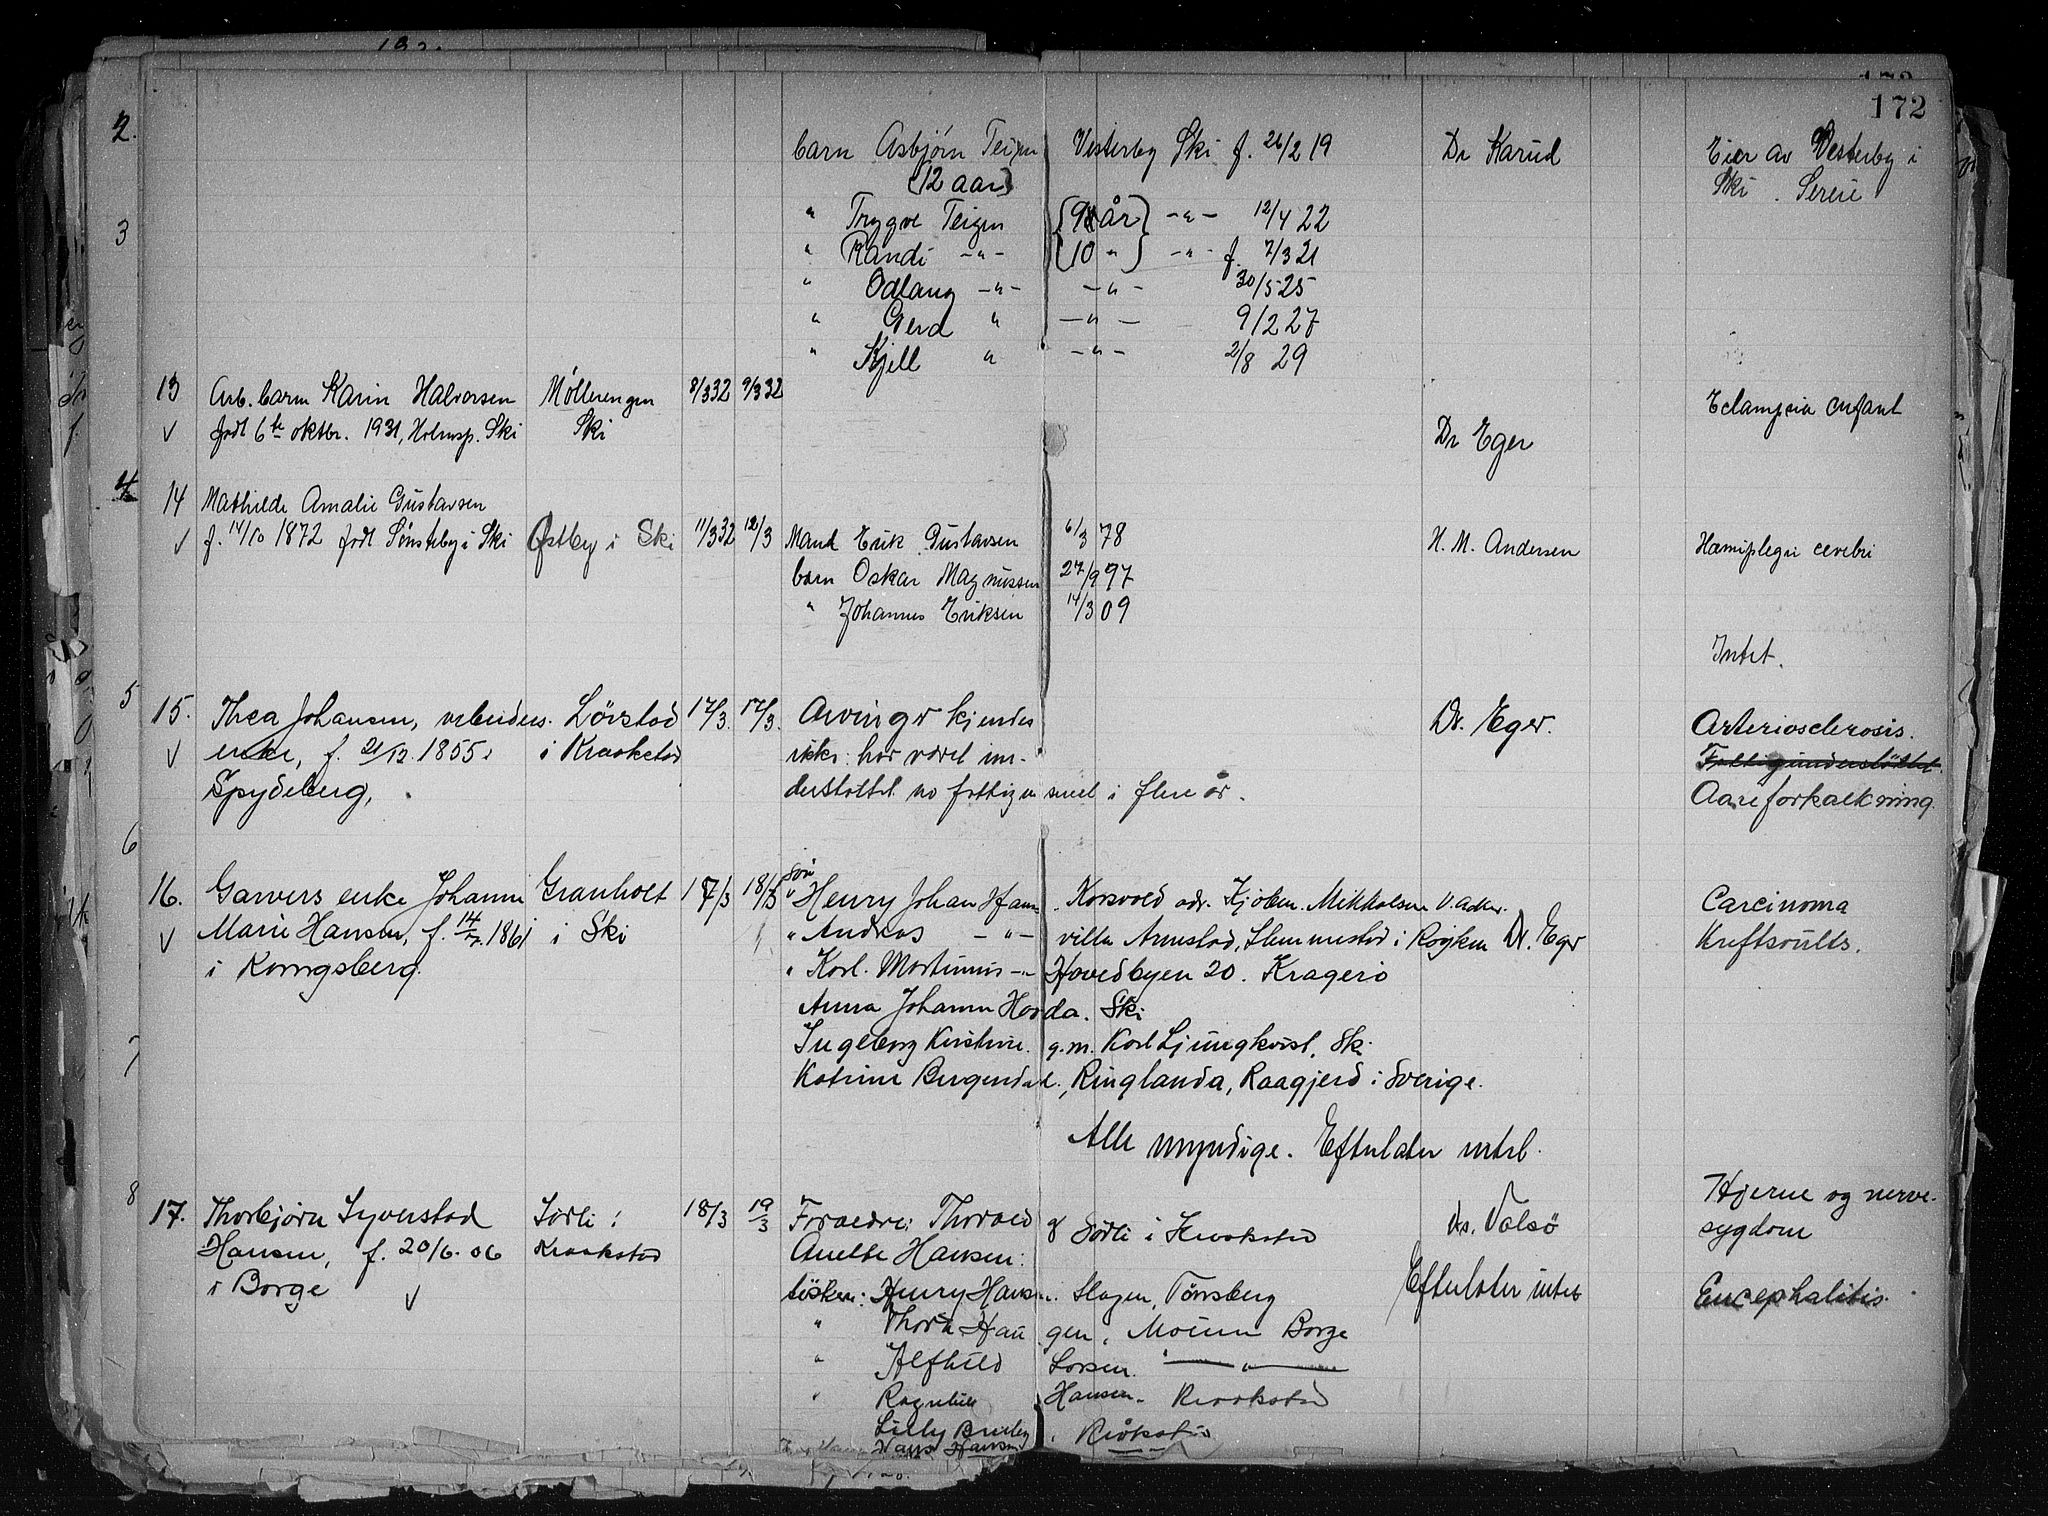 172
2.
barn Asbjørn Teigen Vesterby Ski f. 26/2 19 Dr Karud Eier av Vesterby i
(12 aar) Ski.
3 " Trygve Teigen {9 år} -"- 12/4 22
" Randi -"- {10 "} -"- f. 7/3 21
" Odlaug -"- -"- 30/5 25
" Gerd " -"- 9/2 27
" Kjell " -"- 2/8 29
13 Arb. barn Karin Halvorsen Møllerengen 8/3 32 9/3 32 Eclampsia infant
√ født 6te oktbr. 1931, Holmsp. Ski Ski Dr Eger
4
14 Mathilde Amalie Gustavsen
√ f. 14/10 1872 født Sønsteby i Ski Østby i Ski 11/3 32 12/3 Mand Erik Gustavsen 6/3 78 H. M. Andersen Hæmiplegi cerebri
barn Oskar Magnussen 27/9 97
" Johannes Eriksen 14/3 09
Intet.
5
15. Thea Johansen, arbeiders. Lövstad 17/3. 17/3. Arvinger kjendes Dr. Eger. Arteriosclerosis.
√ enke, f. 21/12. 1855 i i Kraakstad ikke: har været un- Fattigunderstöttet.
Spydeberg, derstöttet av fattigvæsenet i flere år. Aareforkalkning.
6
16. Garvers enke Johanne Granholt 17/3 18/3 Søn " Henry Johan Hansen Korsvold adr. Kjøbm. Mikkelsen V. Aker. Carcinoma
√ Marie Hansen, f. 14/7. 1861 i Ski " Andreas -"- villa Arnestad, Slemmestad i Röyken Dr. Eger Kreftsvulst.
i Kongsberg. " Karl. Martinius -"- Hovedbyen 20. Kragerö
Anna Johanne Horda. Ski
7 Ingeborg Kristine. g.m. Karl Ljungkvist, Ski
Katrine Bergendal, Ringlanda, Raagjerd i Sverige.
Alle myndige. Efterlater intet.
8
17. Thorbjørn Syverstad Sörli i 18/3 19/3 Foraedre: Thorvald & Sörli i Kraakstad Ds. Valsö Hjerne og nerve-
Hansen, f. 20/6. 06 Kraakstad Anette Hansen: sygdom
i Borge √ Söskere: Henry Hansen. Slagen, Tönsberg Efterlater intet Encephalitis.
" Thora Haugen, Moum Borge
" Alfhild Larsen. -"-
" Ragnhild Hansen. Kraakstad
Lilly Kråkstad
Hans Hansen